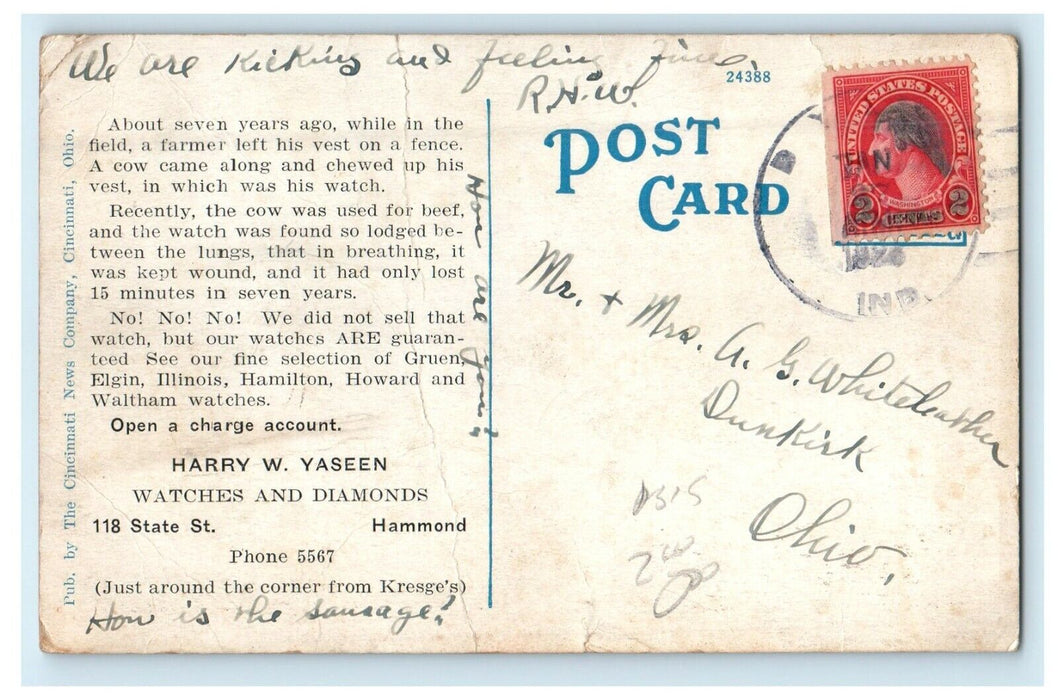 We are kicking and feeling fine.
R.H.W.
24388
About seven years ago, while in the
field, a farmer left his vest on a fence.
A cow came along and chewed up his
vest, in which was his watch.
Recently, the cow was used for beef,
and the watch was found so lodged be-
tween the lungs, that in breathing, it
was kept wound, and it had only lost
15 minutes in seven years.
No! No! No! We did not sell that
watch, but our watches ARE guaran-
teed See our fine selection of Gruen,
Elgin, Illinois, Hamilton, Howard and
Waltham watches.
Open a charge account.
HARRY W. YASEEN
WATCHES AND DIAMONDS
118 State St. Hammond
Phone 5567
(Just around the corner from Kresge's)
How is the sausage?
Pub. by The Cincinnati News Company, Cincinnati, Ohio.
How are
POST
CARD
UNITED STATES POSTAGE
WASHINGTON
2 CENTS 2
IND.
Mr. + Mrs. A. G. Whiteleather
Dunkirk
Ohio.